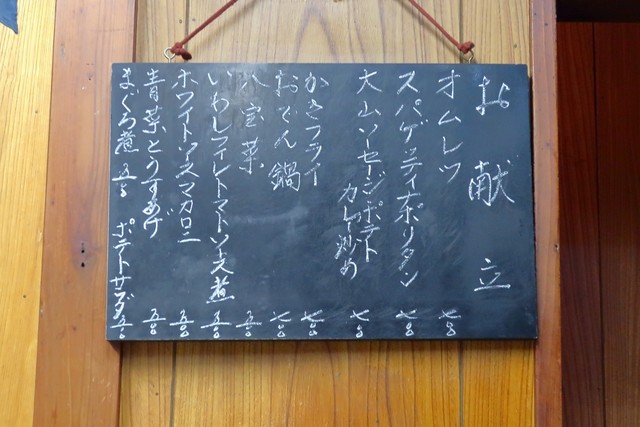 お献立
オムレツ 七〇〇
スパゲッティナポリタン 七〇〇
大山ソーセージポテト
カレー炒め 七〇〇
かきフライ 七〇〇
おでん鍋 七〇〇
八宝菜 五〇〇
いわしフィレトマトソース煮 五〇〇
ホワイトソースマカロニ 五〇〇
青菜とうすあげ 五〇〇
まぐろ煮 五〇〇 ポテトサラダ 五〇〇